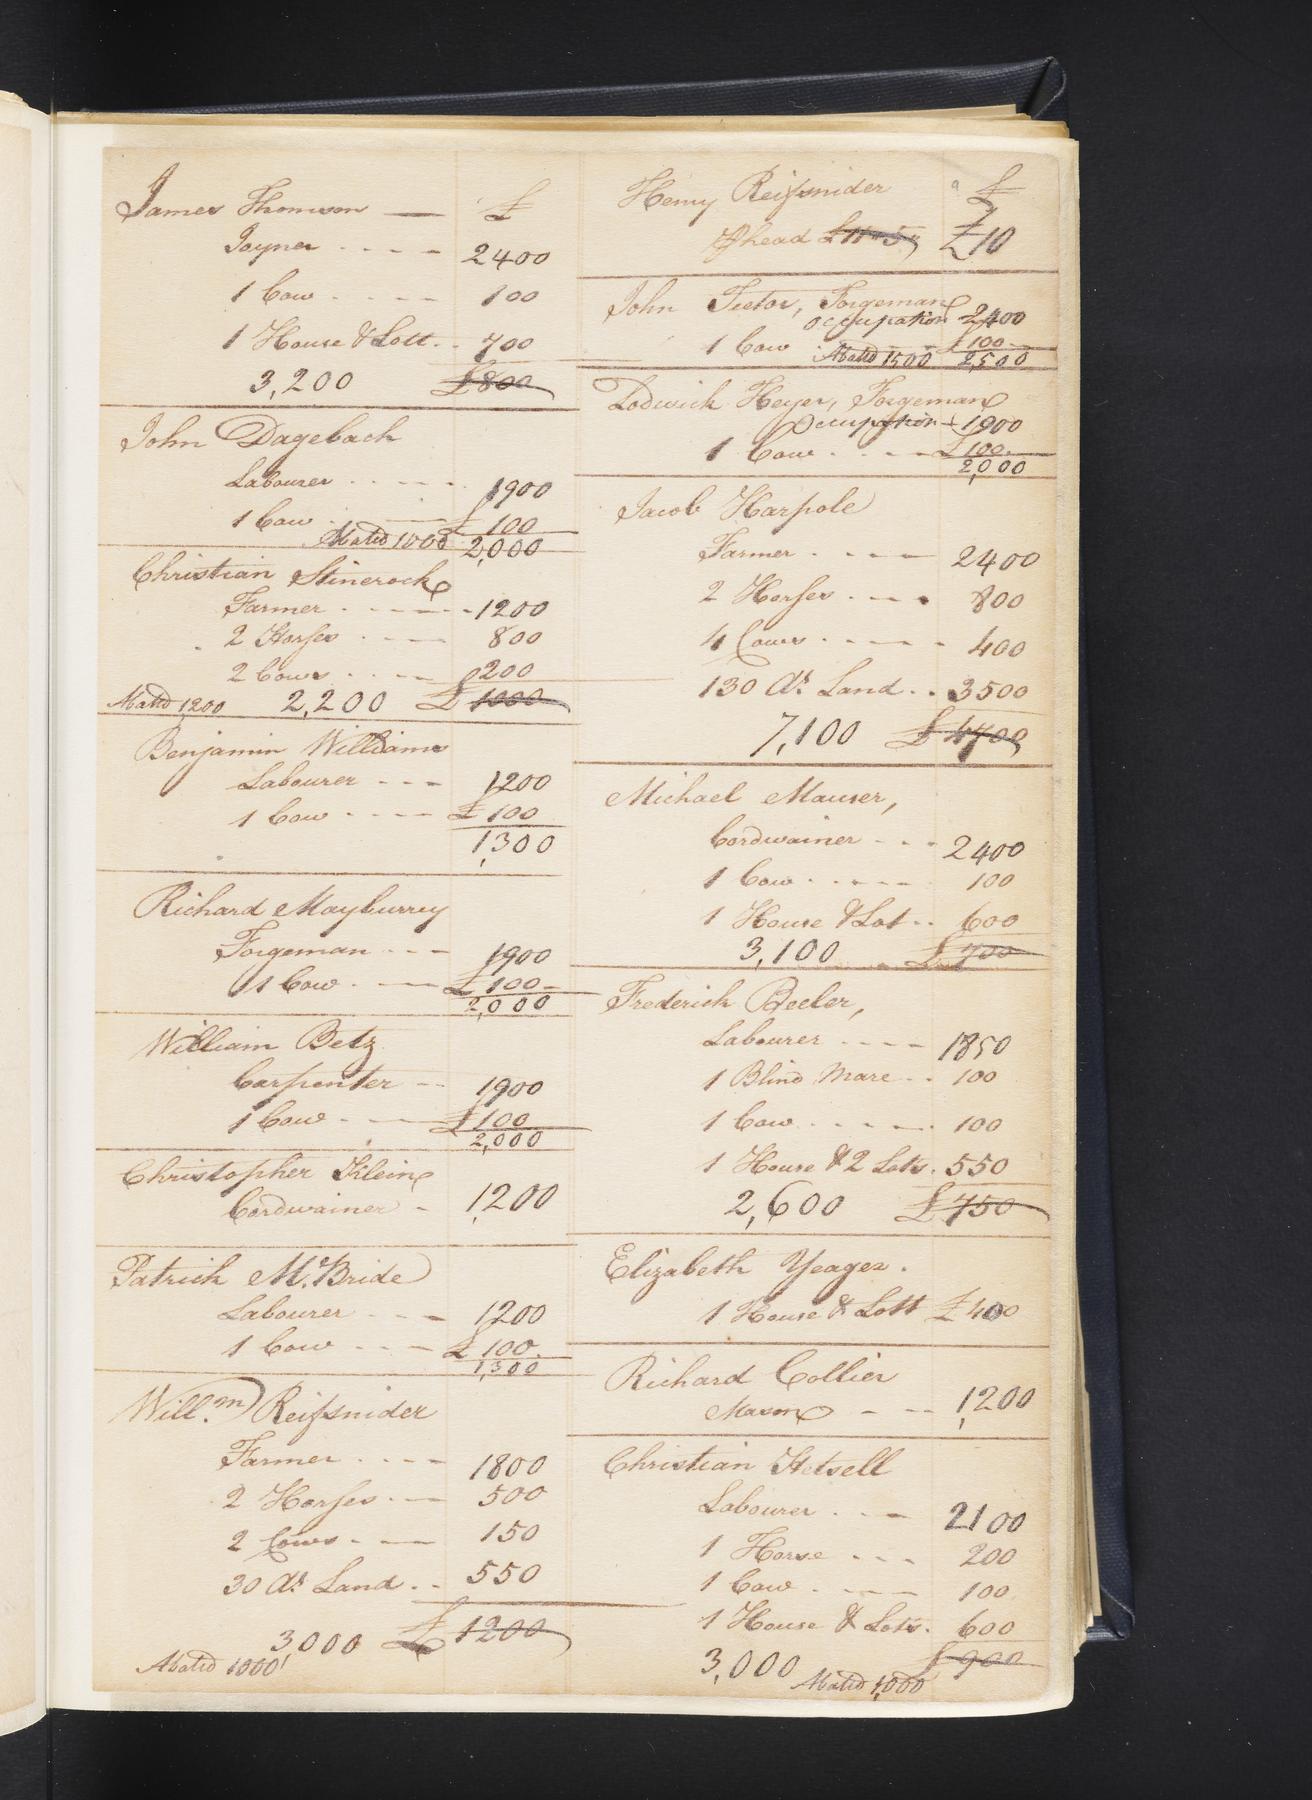 James Thomson — £
Joyner 2400
1 Cow 100
1 House & Lott 700
3,200 £800
John Dagebach
Labourer 1900
1 Cow £100
Abated 1000 2,000
Christian Stinerock
Farmer 1200
2 Horses 800
2 Cows 200
Abated 1,200 2,200 £1000
Benjamin Williams
Labourer 1200
1 Cow £100
1,300
Richard Mayburrey
Forgeman 1900
1 Cow £100
2,000
William Betz
Carpenter 1900
1 Cow £100
2,000
Christopher Klein
Cordwainer 1,200
Patrick Mc.Bride
Labourer 1200
1 Cow £100
1,300
Will.m Reifsnider
Farmer 1800
2 Horses 500
2 Cows 150
30 As. Land 550
3,000 £1200
Abated 1000
Henry Reifsnider £
head £11"5" £10
John Teetor, Forgeman
occupation 2400
1 Cow £100
Abated 1500 2,500
Lodwick Heyer, Forgeman
Occupation 1900
1 Cow £100
2,000
Jacob Harpole
Farmer 2400
2 Horses 800
4 Cows 400
130 As. Land 3500
7,100 £4700
Michael Mauser,
Cordwainer 2400
1 Cow 100
1 House & Lot 600
3,100 £700
Frederick Beeler,
Labourer 1850
1 Blind Mare 100
1 Cow 100
1 House & 2 Lots 550
2,600 £750
Elizabeth Yeager.
1 House & Lott £400
Richard Collier
Mason 1,200
Christian Hetsell
Labourer 2100
1 Horse 200
1 Cow 100
1 House & Lots 600
3,000 £900
Abated 1,000